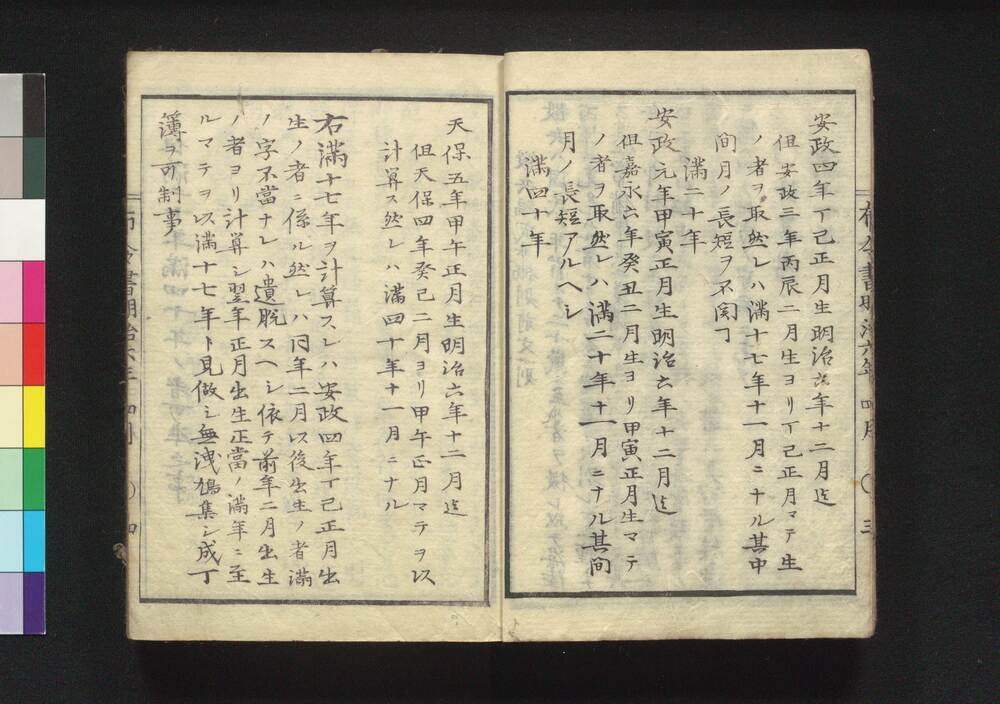 安政四年丁己正月生明治六年十二月迄
但安政三年丙辰二月生ヨリ丁己正月マテ生
ノ者ヲ取然レハ満十七年十一月ニナル其中
間月ノ長短ヲ不関ヿ
満二十年
安政元年甲寅正月生明治六年十二月迄
但嘉永六年癸丑二月生ヨリ甲寅正月生マテ
ノ者ヲ取然レハ満二十年十一月ニナル其間
月ノ長短アルヘシ
満四十年
布令書明治六年 四月 〇 三
天保五年甲午正月生明治六年十二月迄
但天保四年癸己二月ヨリ甲午正月マテヲ以
計算ス然レハ満四十年十一月ニナル
右満十七年ヲ計算スレハ安政四年丁己正月出
生ノ者ニ係ル然レハ同年二月以後出生ノ者満
ノ字不當ナレハ遺脱スヘシ依テ前年二月出生
ノ者ヨリ計算シ翌年正月出生正當ノ満年ニ至
ルマテヲ以満十七年ト見做シ無洩鳩集シ成丁
簿ヲ可制事
布令書明治六年 四月 〇 四